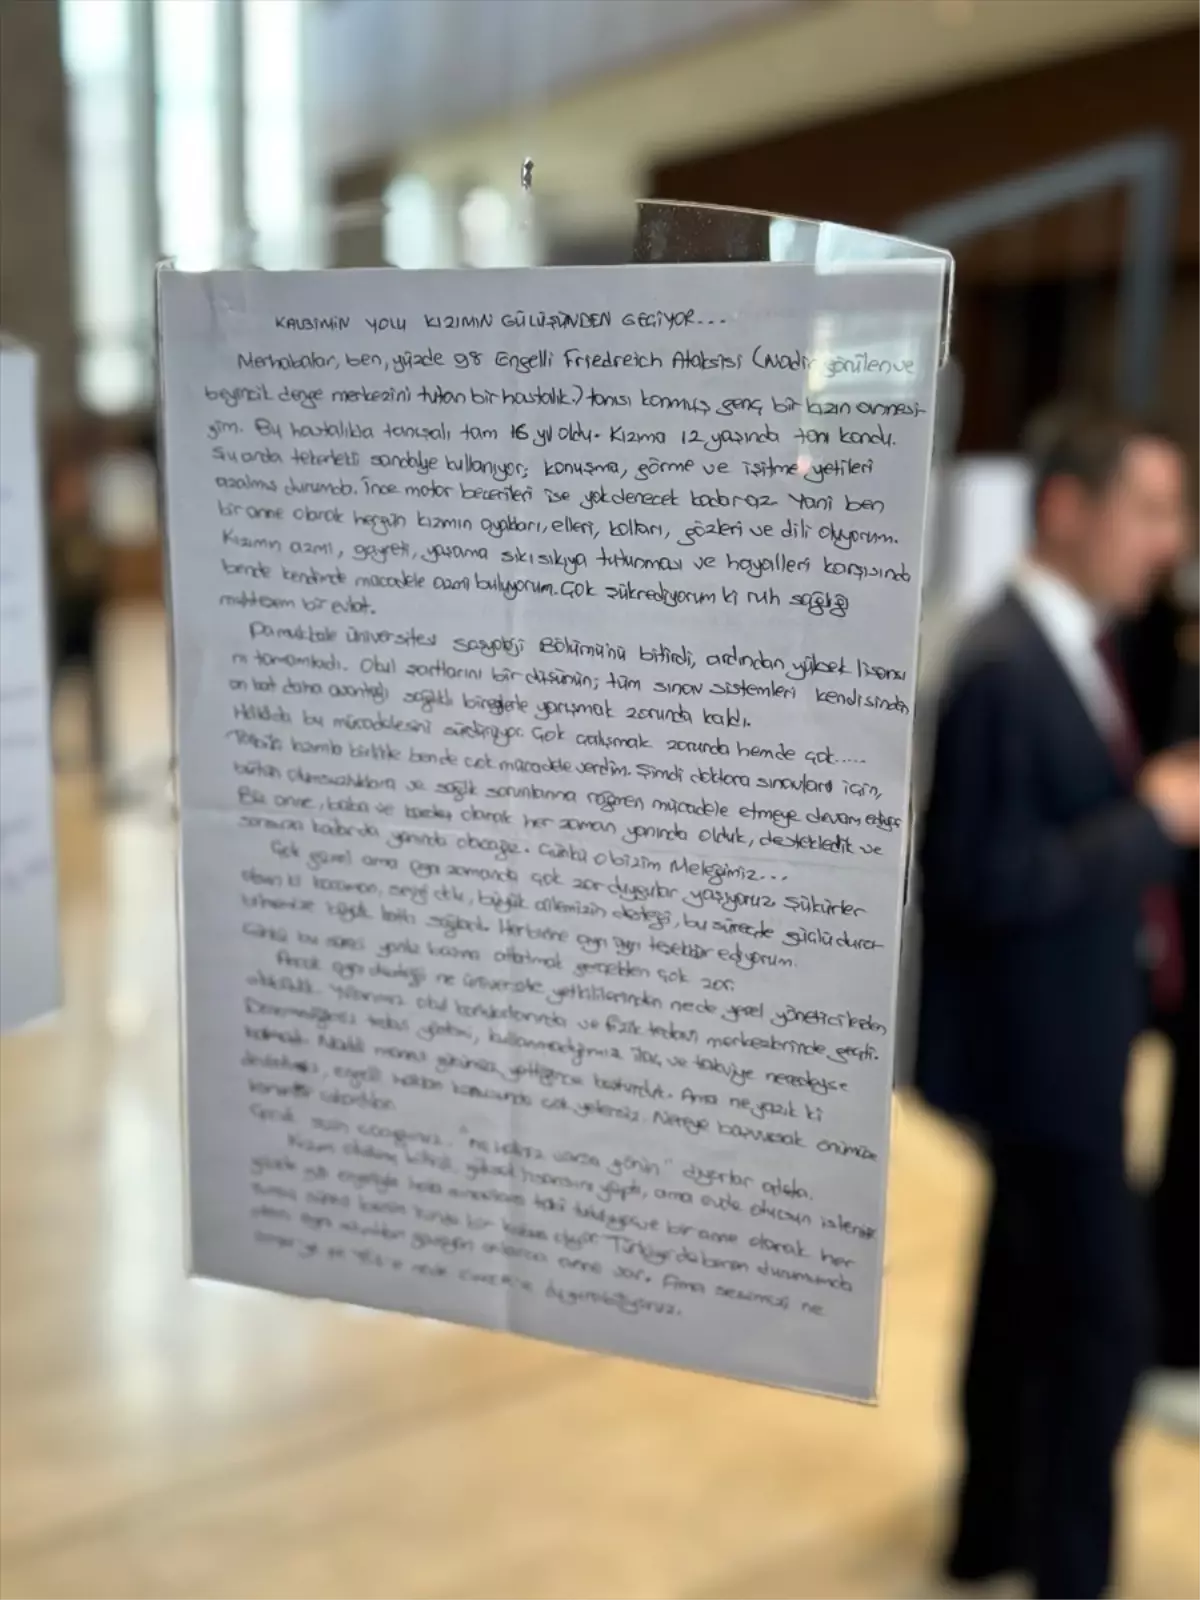 KALBİMİN YOLU KIZIMIN GÜLÜŞÜNDEN GEÇİYOR...
Merhabalar, ben, yüzde 98 Engelli Friedreich Ataksisi (Nadir görülen ve
beyincik denge merkezini tutan bir hastalık.) tanısı konmuş genç bir kızın annesi-
yim. Bu hastalıkla tanışalı tam 16 yıl oldu. Kızıma 12 yaşında tanı kondu.
Şu anda tekerlekli sandalye kullanıyor; konuşma, görme ve işitme yetileri
azalmış durumda. İnce motor becerileri ise yok denecek kadar az. Yani ben
bir anne olarak hergün kızımın ayakları, elleri, kolları, gözleri ve dili oluyorum.
Kızımın azmi, gayreti, yaşama sıkı sıkıya tutunması ve hayalleri karşısında
bende kendimde mücadele azmi buluyorum. Çok şükrediyorum ki ruh sağlığı
muhteşem bir evlat.
Pamukkale üniversitesi Sosyoloji Bölümünü bitirdi, ardından yüksek lisansı
nı tamamladı. Okul şartlarını bir düşünün; tüm sınav sistemleri kendisinden
on kat daha avantajlı sağlıklı bireylerle yarışmak zorunda kaldı.
Halada bu mücadelesini sürdürüyor. Çok çalışmak zorunda hemde çok.....
Tabiki kızımla birlikte bende çok mücadele verdim. Şimdi doktora sınavları için,
bütün olumsuzluklara ve sağlık sorunlarına rağmen mücadele etmeye devam ediyor
Biz anne, baba ve kardeş olarak her zaman yanında olduk, destekledik ve
sonsuza kadarda yanında olacağız. Çünkü o bizim Meleğimiz...
Çok güzel ama aynı zamanda çok zor duygular yaşıyoruz. Şükürler
olsun ki kocaman, sevgi dolu, büyük ailemizin desteği, bu süreçde güçlü dura-
bilmemize büyük katkı sağladı. Herbirine ayrı ayrı teşekkür ediyorum.
Çünkü bu süreci yalnız başına atlatmak gerçekten çok zor.
Ancak aynı desteği ne üniversite yetkililerinden nede yerel yöneticilerden
alabildik. Yıllarımız okul koridorlarında ve fizik tedavi merkezlerinde geçti.
Denemediğimiz tedavi yöntemi, kullanmadığımız ilaç ve takviye neredeyse
kalmadı. Ama ne yazık ki
engelli hakları konusunda çok yetersiz. Nereye başvursak önümüze
Çocuk sizin çocuğunuz. "ne haliniz varsa görün" diyorlar adeta.
Kızım okulunu bitirdi, yüksek lisansını yaptı, ama evde otursun isteniyor
ve bir anne olarak her
Türkiye'de benim durumumda
anne var. Ama sesimizi ne
duyurabiliyoruz.